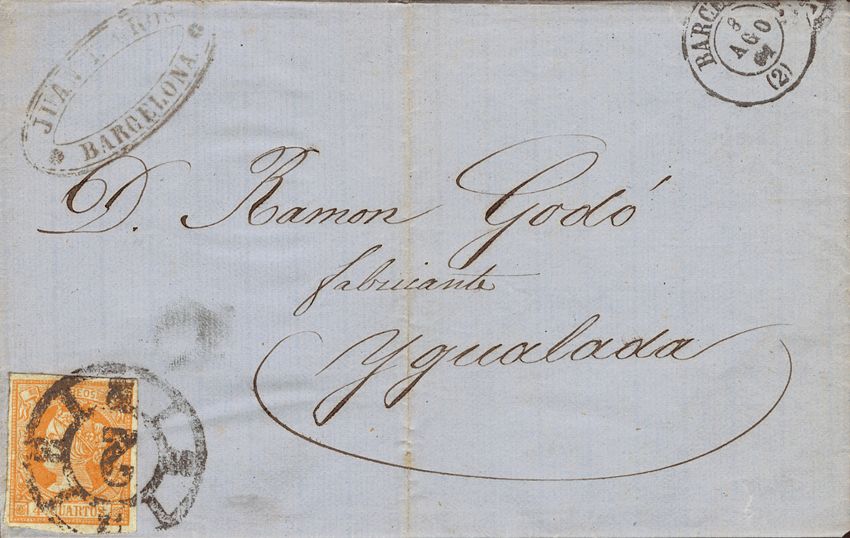 JUAN
BARCELONA
BARCE
8
AGO
(2)
D. Ramon Godó
fabricante
Ygualada
4 CUARTOS